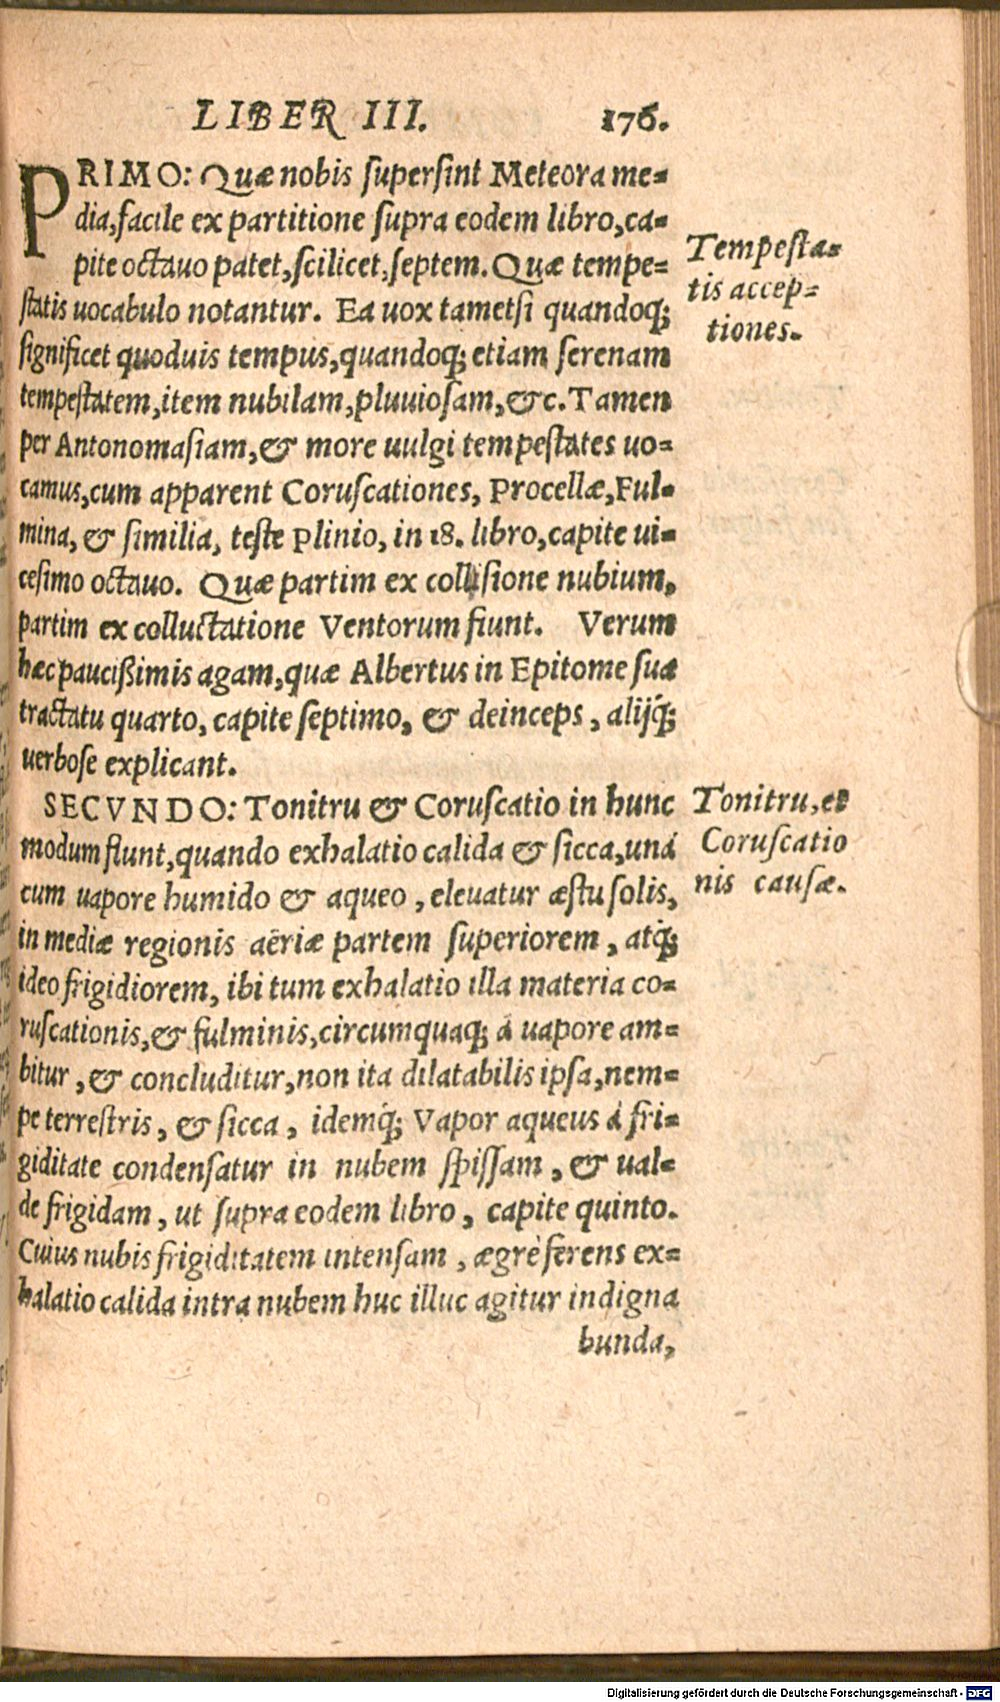 LIBER III. 176.
PRIMO: Quæ nobis superſint Meteora me-
dia, facile ex partitione ſupra eodem libro, ca-
pite octauo patet, ſcilicet, ſeptem. Quæ tempe-
ſtatis uocabulo notantur. Ea uox tametſi quandoq;
ſignificet quoduis tempus, quandoq; etiam ſerenam
tempeſtatem, item nubilam, pluuioſam, &c. Tamen
per Antonomaſiam, & more uulgi tempeſtates uo-
camus, cum apparent Coruſcationes, Procellæ, Ful-
mina, & ſimilia, teſte Plinio, in 18. libro, capite ui-
ceſimo octauo. Quæ partim ex colliſione nubium,
partim ex colluctatione Ventorum fiunt. Verum
hæc pauciſsimis agam, quæ Albertus in Epitome ſuæ
tractatu quarto, capite ſeptimo, & deinceps, alijq́;
uerboſe explicant.
SECVNDO: Tonitru & Coruſcatio in hunc
modum fiunt, quando exhalatio calida & ſicca, unà
cum uapore humido & aqueo, eleuatur æſtu ſolis,
in mediæ regionis aëriæ partem ſuperiorem, atq́;
ideo frigidiorem, ibi tum exhalatio illa materia co-
ruſcationis, & fulminis, circumquaq; à uapore am-
bitur, & concluditur, non ita dilatabilis ipſa, nem-
pe terreſtris, & ſicca, idemq́; Vapor aqueus à fri-
giditate condenſatur in nubem ſpiſſam, & ual-
de frigidam, ut ſupra eodem libro, capite quinto.
Cuius nubis frigiditatem intenſam, ægrè ferens ex-
halatio calida intra nubem huc illuc agitur indigna
bunda,
Tempeſta-
tis accep-
tiones.
Tonitru, et
Coruſcatio
nis cauſæ.
Digitalisierung gefördert durch die Deutsche Forschungsgemeinschaft - DFG